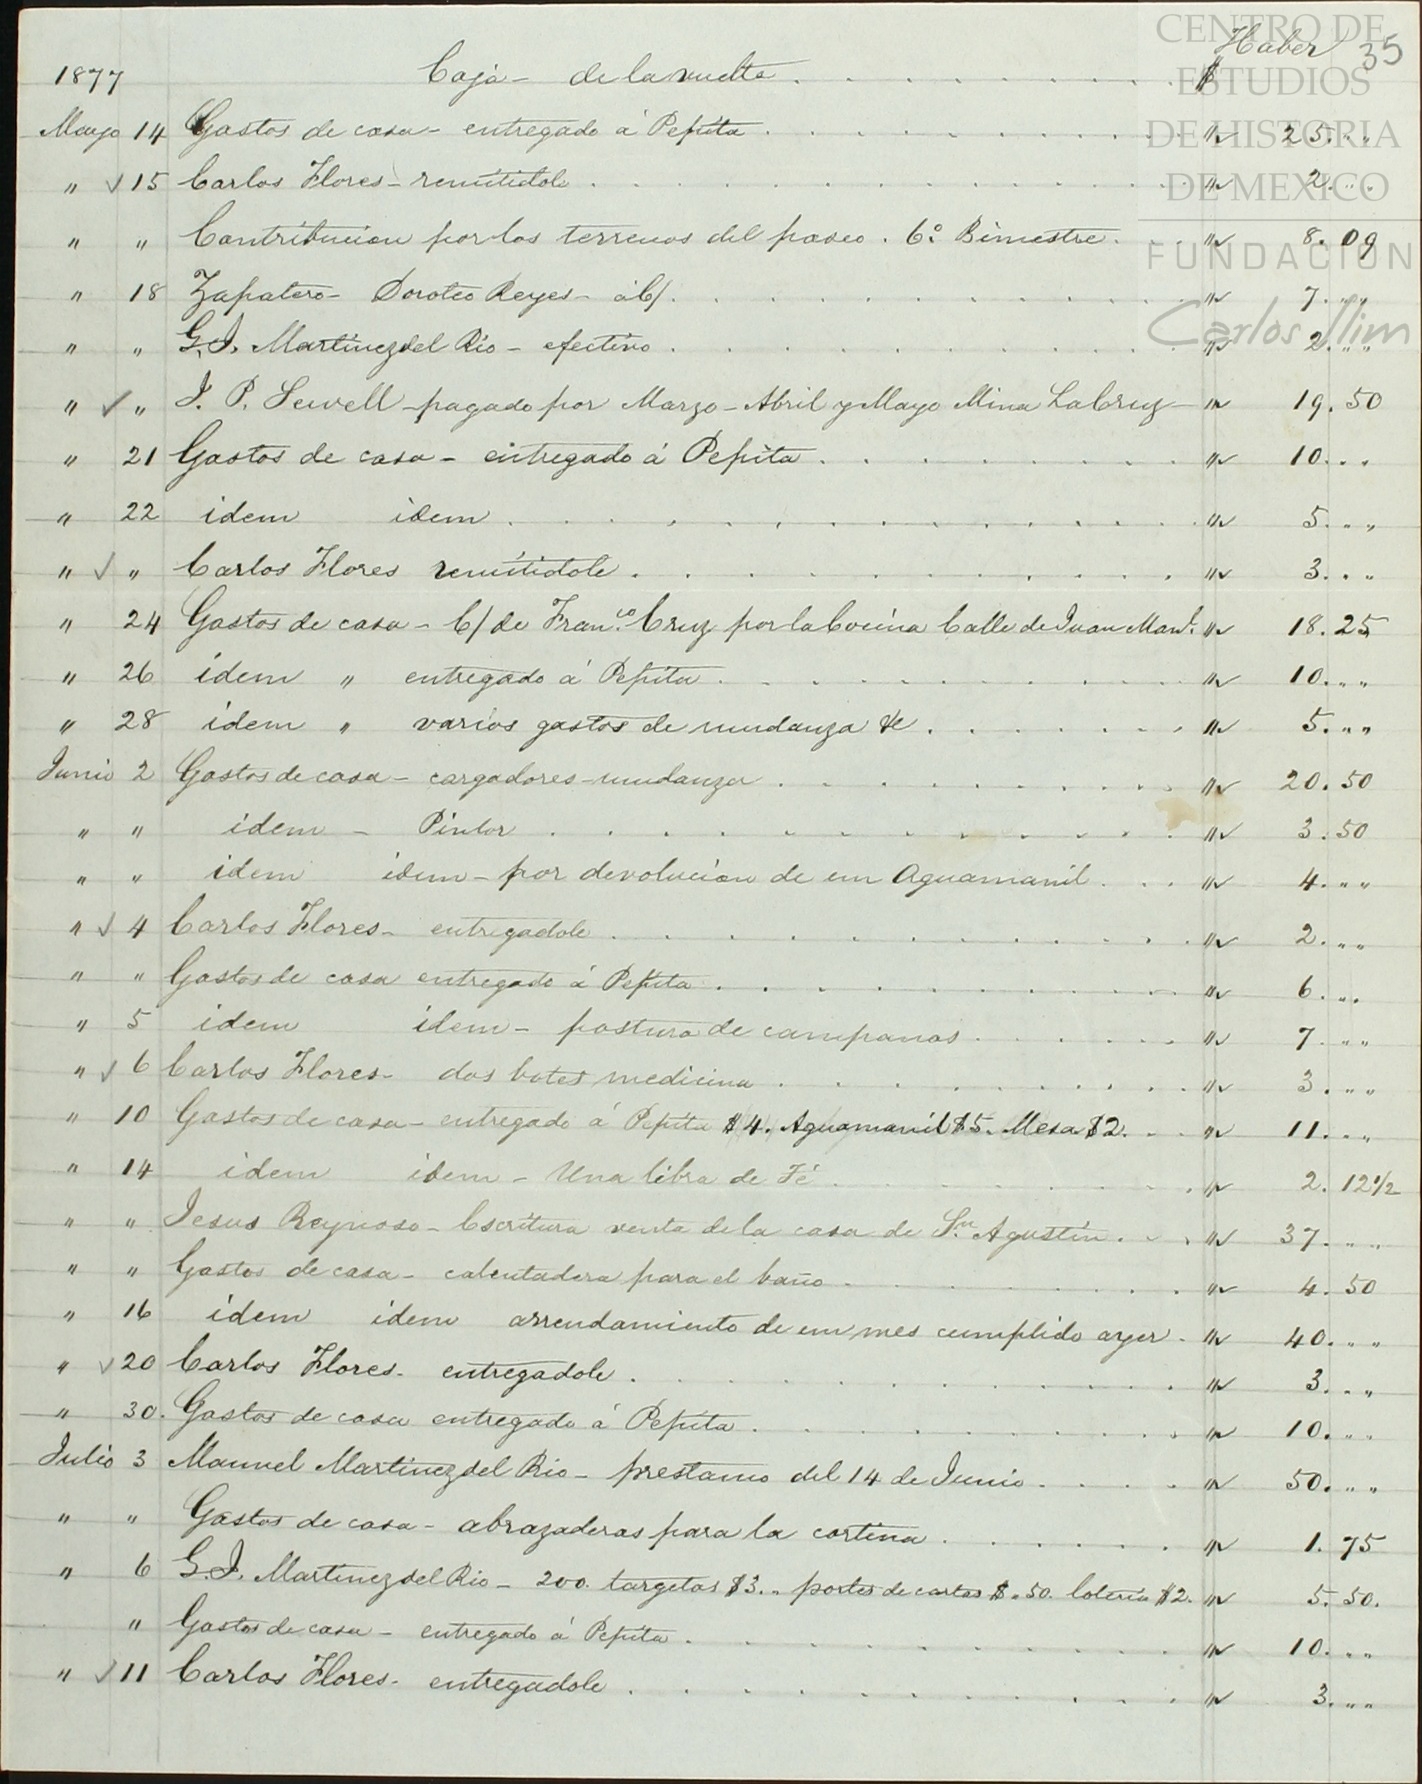 CENTRO DE
ESTUDIOS
DE HISTORIA
DE MEXICO
FUNDACION
Carlos Slim
Haber 35
1877 Caja - de la vuelta . . . $
Mayo 14 Gastos de casa - entregado á Pepita . . . " 25. " "
" 15 Carlos Flores - remitidole . . . " 2. " "
" " Contribucion por los terrenos del paseo . 6º Bimestre . . . " 8. 09
" 18 Zapatero - Doroteo Reyes - á c/ . . . " 7. " "
" " G. I. Martinez del Rio - efectivo . . . " 2. " "
" " J. P. Sewell - pagado por Marzo - Abril y Mayo Mina La Cruz - " 19. 50
" 21 Gastos de casa - entregado á Pepita . . . " 10. " "
" 22 idem idem . . . " 5. " "
" " Carlos Flores remitidole . . . " 3. " "
" 24 Gastos de casa - C/ de Franco. Cruz por la Cocina Calle de Juan Manl. " 18. 25
" 26 idem " entregado á Pepita . . . " 10. " "
" 28 idem " varios gastos de mudanza &c . . . " 5. " "
Junio 2 Gastos de casa - cargadores - mudanza . . . " 20. 50
" " idem - Pintor . . . " 3. 50
" " idem idem - por devolucion de un Aguamanil . . . " 4. " "
" 4 Carlos Flores - entregadole . . . " 2. " "
" " Gastos de casa entregado á Pepita . . . " 6. " "
" 5 idem idem - postura de campanas . . . " 7. " "
" 6 Carlos Flores - dos botes medicina . . . " 3. " "
" 10 Gastos de casa - entregado á Pepita $4. Aguamanil $5. Mesa $2. . . " 11. " "
" 14 idem idem - Una libra de Té . . . " 2. 12 1/2
" " Jesus Reynoso - Escritura venta de la casa de Sn. Agustin . . . " 37. " "
" " Gastos de casa - calentadera para el baño . . . " 4. 50
" 16 idem idem arrendamiento de un mes cumplido ayer - " 40. " "
" 20 Carlos Flores - entregadole . . . " 3. " "
" 30. Gastos de casa entregado á Pepita . . . " 10. " "
Julio 3 Manuel Martinez del Rio - prestamo del 14 de Junio . . . " 50. " "
" " Gastos de casa - abrazaderas para la cortina . . . " 1. 75
" 6 G. I. Martinez del Rio - 200. targetas $3. " portes de cartas $ .50. loteria $2. " 5. 50.
" Gastos de casa - entregado á Pepita . . . " 10. " "
" 11 Carlos Flores - entregadole . . . " 3. " "